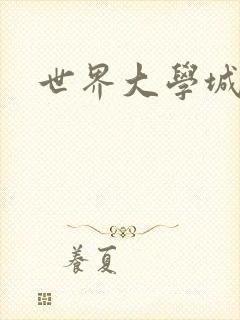 世界大學城
養夏